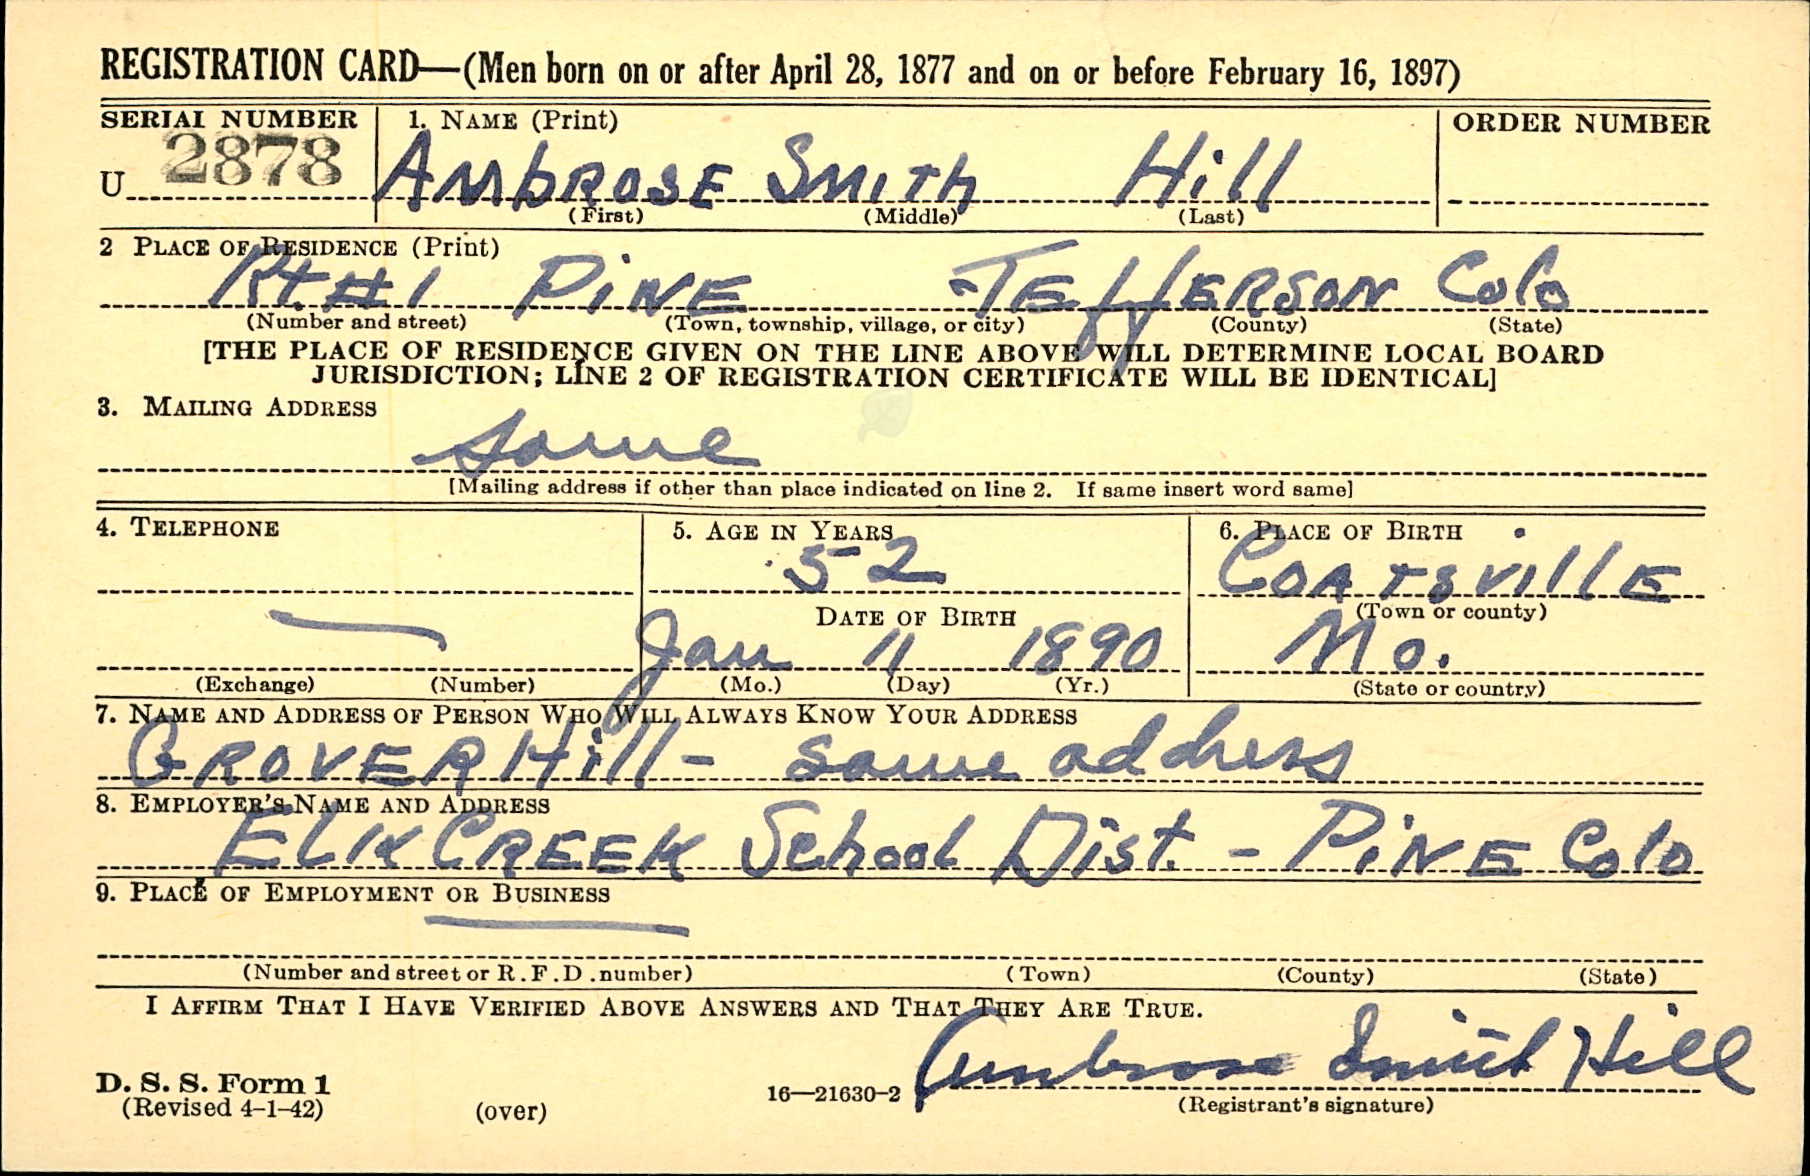 REGISTRATION CARD—(Men born on or after April 28, 1877 and on or before February 16, 1897)
SERIAL NUMBER 1. NAME (Print) ORDER NUMBER
U 2878 AMbROSE SMITh Hill
(First) (Middle) (Last)
2 PLACE OF RESIDENCE (Print)
Rt. #1 PiNE JEffERSON Colo
(Number and street) (Town, township, village, or city) (County) (State)
[THE PLACE OF RESIDENCE GIVEN ON THE LINE ABOVE WILL DETERMINE LOCAL BOARD
JURISDICTION; LINE 2 OF REGISTRATION CERTIFICATE WILL BE IDENTICAL]
3. MAILING ADDRESS
Same
[Mailing address if other than place indicated on line 2. If same insert word same]
4. TELEPHONE 5. AGE IN YEARS 6. PLACE OF BIRTH
52 COATSVillE
DATE OF BIRTH (Town or county)
— Jan 11 1890 Mo.
(Exchange) (Number) (Mo.) (Day) (Yr.) (State or country)
7. NAME AND ADDRESS OF PERSON WHO WILL ALWAYS KNOW YOUR ADDRESS
GROVER Hill - same address
8. EMPLOYER'S NAME AND ADDRESS
ELK CREEK School Dist. - PiNE Colo
9. PLACE OF EMPLOYMENT OR BUSINESS
—
(Number and street or R.F.D. number) (Town) (County) (State)
I AFFIRM THAT I HAVE VERIFIED ABOVE ANSWERS AND THAT THEY ARE TRUE.
Ambrose Smith Hill
D. S. S. Form 1
(Revised 4-1-42) (over) 16—21630-2 (Registrant's signature)